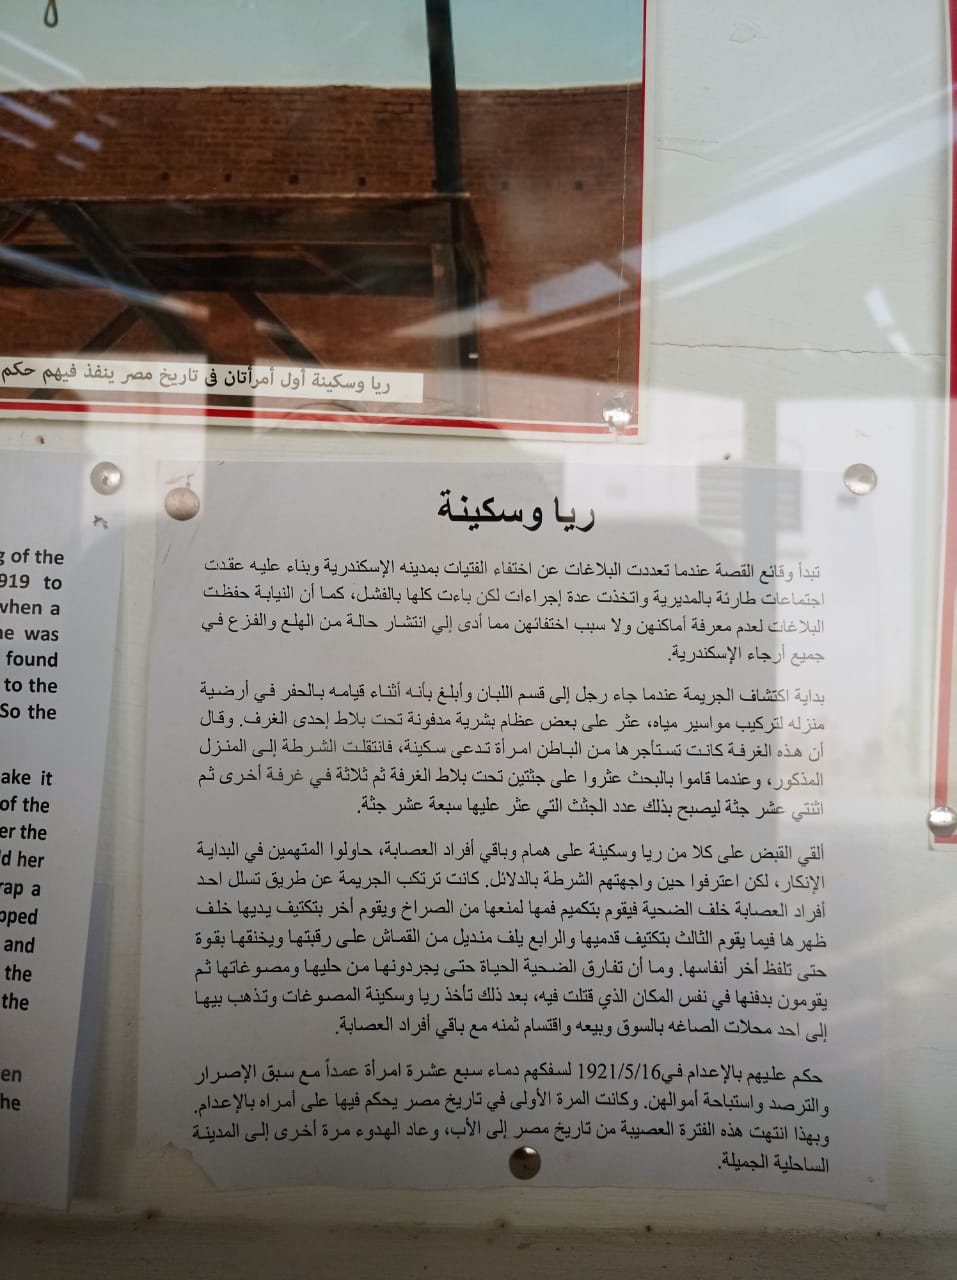 ريا وسكينة أول أمرأتان فى تاريخ مصر ينفذ فيهم حكم
g of the
919 to
when a
ne was
found
to the
So the
ake it
of the
er the
ld her
rap a
pped
and
the
the
en
he
ريا وسكينة
تبدأ وقائع القصة عندما تعددت البلاغات عن اختفاء الفتيات بمدينه الإسكندرية وبناء عليه عقدت
اجتماعات طارئة بالمديرية واتخذت عدة إجراءات لكن باءت كلها بالفشل، كما أن النيابة حفظت
البلاغات لعدم معرفة أماكنهن ولا سبب اختفائهن مما أدى إلي انتشار حالة من الهلع والفزع في
جميع أرجاء الإسكندرية.
بداية اكتشاف الجريمة عندما جاء رجل إلى قسم اللبان وأبلغ بأنه أثناء قيامه بالحفر في أرضية
منزله لتركيب مواسير مياه، عثر على بعض عظام بشرية مدفونة تحت بلاط إحدى الغرف. وقال
أن هذه الغرفة كانت تستأجرها من الباطن امرأة تدعى سكينة، فانتقلت الشرطة إلى المنزل
المذكور، وعندما قاموا بالبحث عثروا على جثتين تحت بلاط الغرفة ثم ثلاثة في غرفة أخرى ثم
اثنتي عشر جثة ليصبح بذلك عدد الجثث التي عثر عليها سبعة عشر جثة.
ألقي القبض على كلا من ريا وسكينة على همام وباقي أفراد العصابة، حاولوا المتهمين في البداية
الإنكار، لكن اعترفوا حين واجهتهم الشرطة بالدلائل. كانت ترتكب الجريمة عن طريق تسلل احد
أفراد العصابة خلف الضحية فيقوم بتكميم فمها لمنعها من الصراخ ويقوم أخر بتكتيف يديها خلف
ظهرها فيما يقوم الثالث بتكتيف قدميها والرابع يلف منديل من القماش على رقبتها ويخنقها بقوة
حتى تلفظ أخر أنفاسها. وما أن تفارق الضحية الحياة حتى يجردونها من حليها ومصوغاتها ثم
يقومون بدفنها في نفس المكان الذي قتلت فيه، بعد ذلك تأخذ ريا وسكينة المصوغات وتذهب بيها
إلى احد محلات الصاغه بالسوق وبيعه واقتسام ثمنه مع باقي أفراد العصابة.
حكم عليهم بالإعدام في1921/5/16 لسفكهم دماء سبع عشرة امرأة عمداً مع سبق الإصرار
والترصد واستباحة أموالهن. وكانت المرة الأولى في تاريخ مصر يحكم فيها على أمراه بالإعدام.
وبهذا انتهت هذه الفترة العصيبة من تاريخ مصر إلى الأب، وعاد الهدوء مرة أخرى إلى المدينة
الساحلية الجميلة.